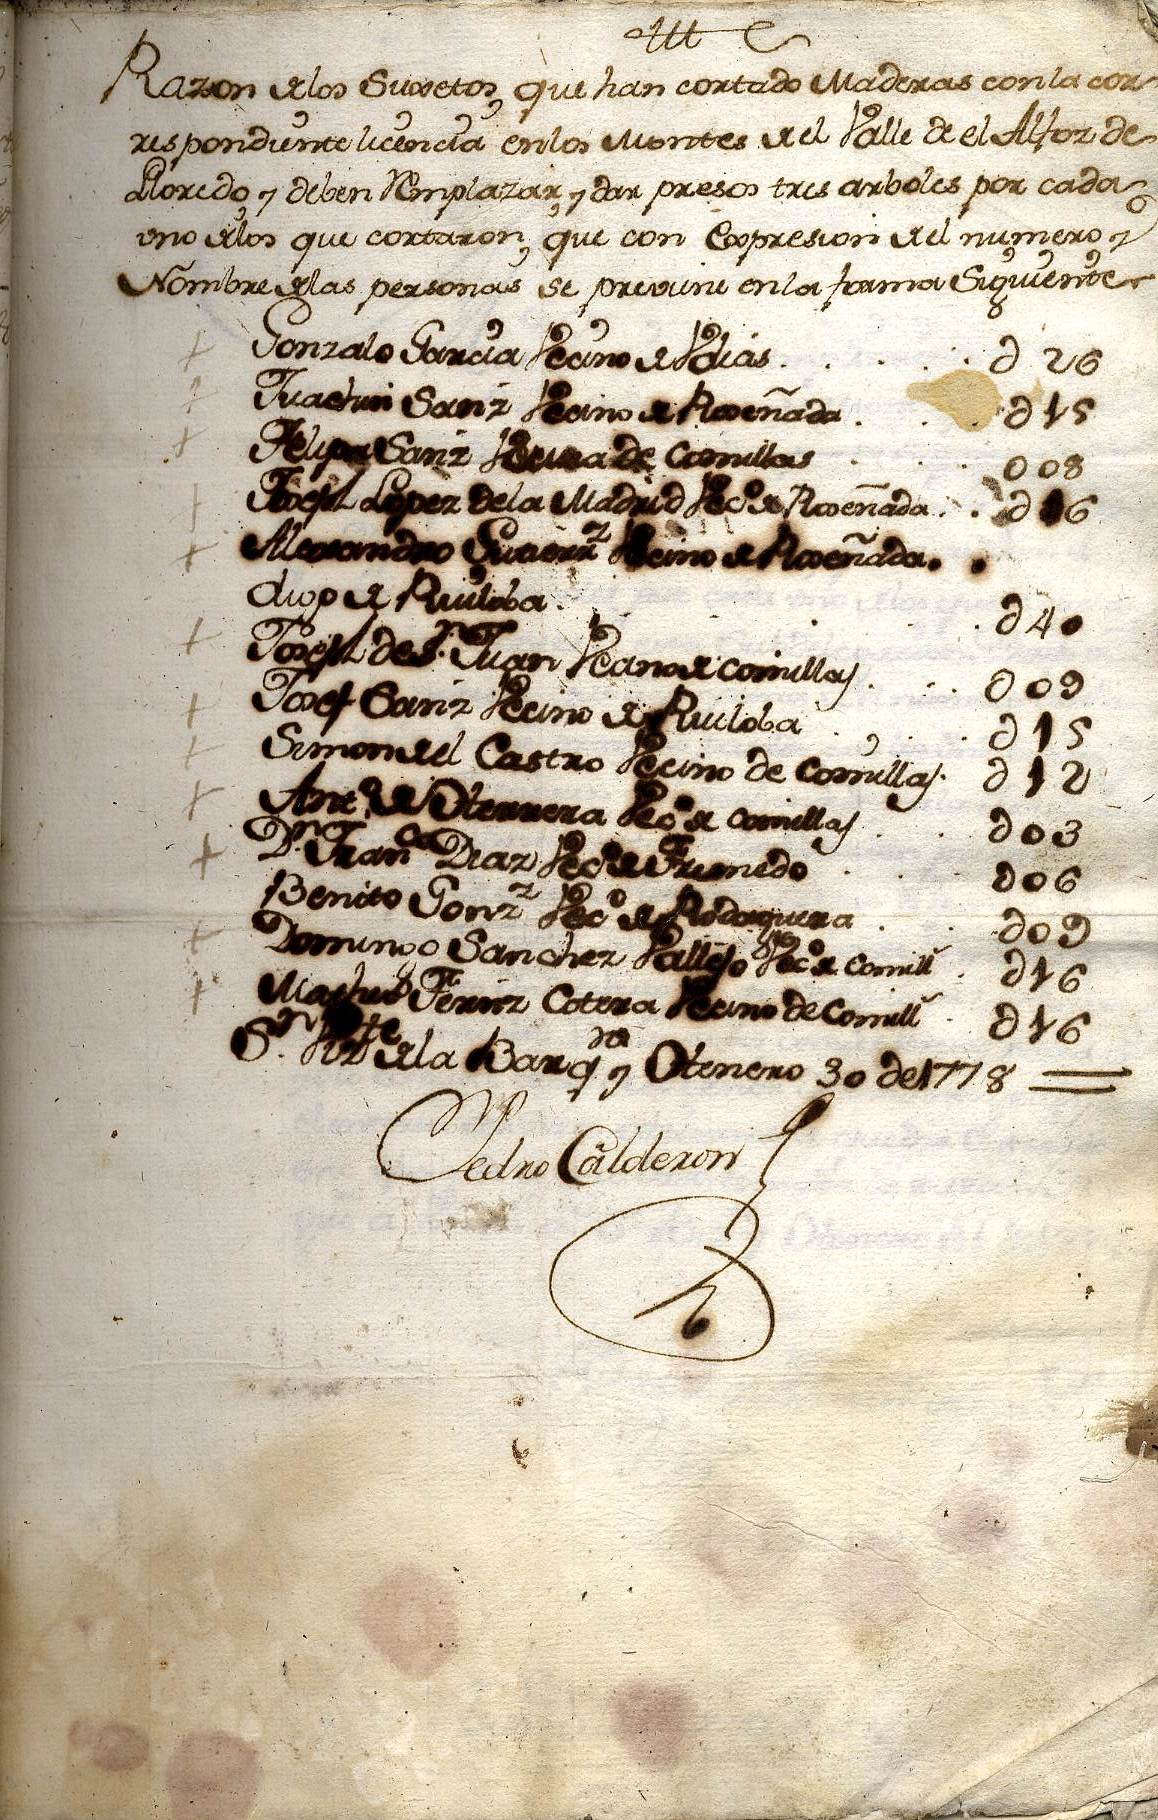 Razon de los Suxetos, que han cortado Maderas con la cor-
respondiente licencia en los Montes del Valle de el Alfoz de
Lloredo, y deben Remplazar, y dar presos tres arboles por cada
uno de los que cortaron, que con expresion del numero, y
Nombre de las personas se previene en la forma Siguiente
Gonzalo Garcia Vecino de Udias . . . . 026
Juachin Sanz Vecino de Ruseñada . . . 015
Felipa Sanz Vecina de Comillas . . . 008
Joseph Lopez de la Madrid Vec.o de Ruseñada . . 016
Alexandro Gutierr.z Vecino de Ruseñada . .
digo de Ruiloba . . . . 040
Joseph de S.n Juan Vecino de Comillas . . . 009
Josef Sanz Vecino de Ruiloba . . . 015
Simon del Castro Vecino de Comillas . 012
Ant.o de Oterrera Vec.o de Comillas . . 003
D.n Fran.ca Diaz Vec.o de Tresmedo . . . 006
Benito Gonz.z Vec.o de Rodaguera . . 009
Domingo Sanchez Vallejo Vec.o de Comill . 016
Ferñz Cotera Vecino de Comill . 016
S.n Viz.te de la Barq.ra y Henero 30 de 1778
Pedro Calderon